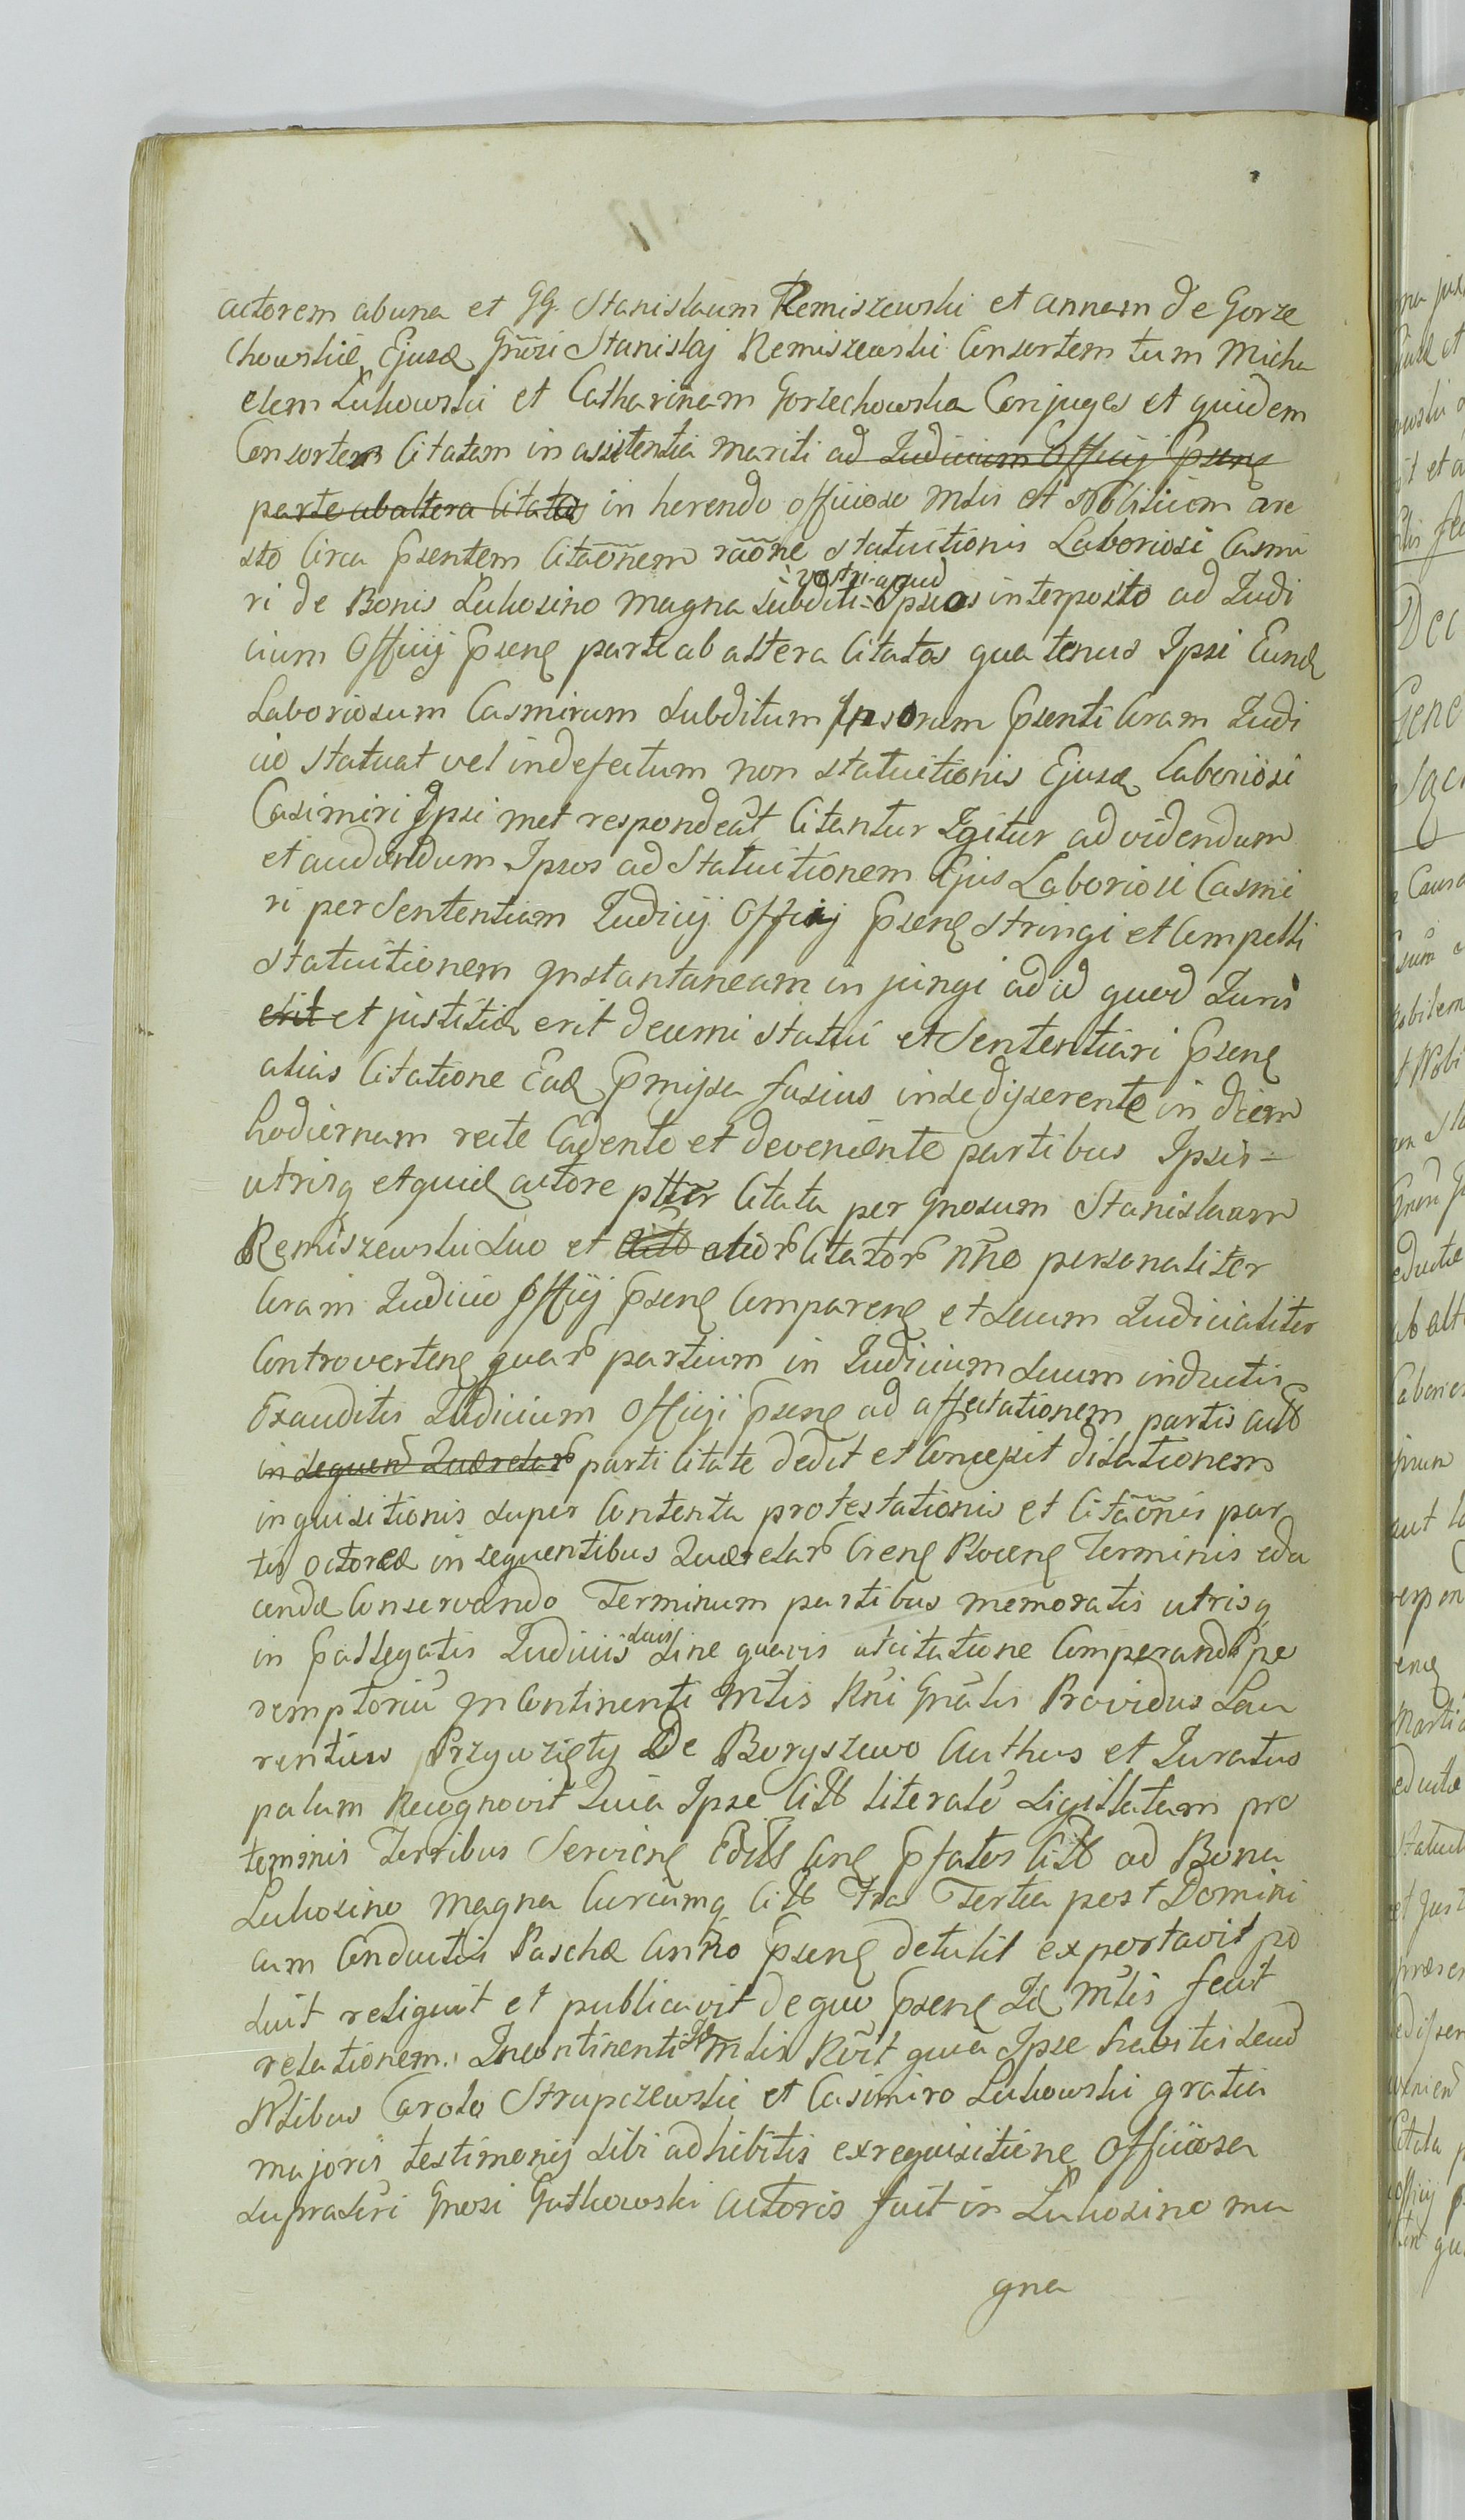 actorem ab una et GG. Stanislaum Remiszewski et annam de Gorze
chowskie Ejusd Gnosi Stanislaj Remiszewski Consortem tum Micha
elem Lukowski et Catharinam Gorzechowska Conjuges et quidem
Consortem Citatam in assistentia mariti ad Judicium Officij Psens
parte ab altera Citatos in herendo officioso Mtlis et Nobilium are
sto Circa Psentem Citãonem rãone statuitionis Laboriosi Casmi
ri de Bonis Lukosino magna subditi vestri apud Ipsos interposito ad Judi
cium Officij Psens parte ab altera Citatos qua tenus Ipsi Eund
Laboriosum Casmirum subditum Ipsorum Psenti Coram Judi
cio statuat vel in defectum non statuitionis Ejusd Laboriosi
Casimiri Ipsi met respondeat Citantur Igitur ad videndum
et audiendum Ipsos ad statuitionem Ejus Laboriosi Casmi
ri per Sententiam Judicij Officij Psens stringi et Compelli
statuitionem Instantaneam in jungi ad id quod Juris
erit et justitia erit decerni statui et Sententiari Psens
alias Citatione Ead Pmissa fusius in se disserente in diem
hodiernam recte Cadente et deveniente partibus Ipsis
utrisq et quid actore ptter Citata per Gnosum Stanislaum
Remiszewski suo et Citator nne personaliter
Coram Judicio Officij Psens Comparens et secum Judicialiter
Controvertens quar partium in Judicium suum inductis
Exauditis Judicium Officij Psens ad affectationem partis
in sequen Querelar parti Citate dedit et Concessit dilationem
inquisitionis super Contenta protestationis et Citãonis par
tis actorea in sequentibus Querelar Crens Plocens Terminis edu
cenda Conservando Terminum partibus memoratis utrisq
in Pallegatis Judicijs suis sine quavis adcitatione Comparendi pe
remptoriũ In Continenti Mtlis Rni Gnãlis Providus Lau
rentius Przywzięty De Boryszewo Authus et Juratus
palam Recognovit Quia Ipse literale sigillatam pro
teminis Terribus Serviens ad Bona
Lukosino magna Curiamq Fria Tertia post Domini
cam Conductus Pascha Anno Psens detulit exportavit po
suit reliquit et publicavit de quo Psens Id Mtlis fecit
relationem. Incontinenti Id Mtlis Rõit quia Ipse habitis secu
Nlibus Carolo Strupczewski et Casimiro Lukowski gratia
majoris testimonij sibi adhibitis ex requisitione Officiosa
supra Gnosi Gutkowski actoris fuit in Lukosino ma
gna